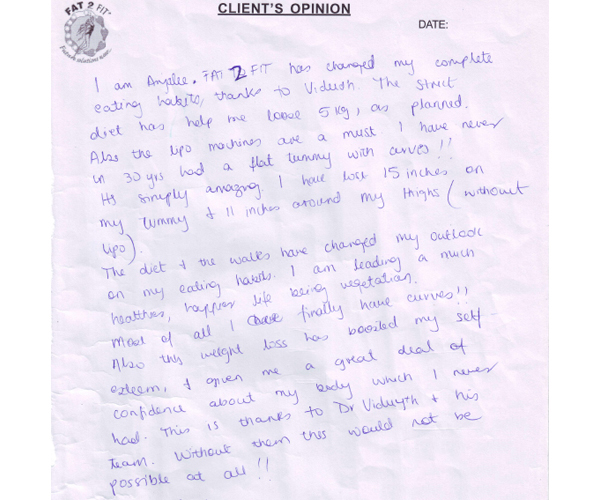 FAT 2 FIT
CLIENT'S OPINION
DATE:
I am Anjlee. FAT 2 FIT has changed my complete
eating habits, thanks to Vidush. The strict
diet has help me loose 5 kg, as planned.
Also the lipo machines are a must I have never
in 30 yrs had a flat tummy with curves!!
Its simply amazing. I have lost 15 inches on
my tummy & 11 inches around my thighs (without
lipo).
The diet & the walks have changed my outlook
on my eating habits. I am leading a much
healthier, happier life being vegetation.
Most of all I have finally have curves!!
Also this weight loss has boosted my self-
esteem, & given me a great deal of
confidence about my body which I never
had. This is thanks to Dr & his
team. Without them this would not be
possible at all!!